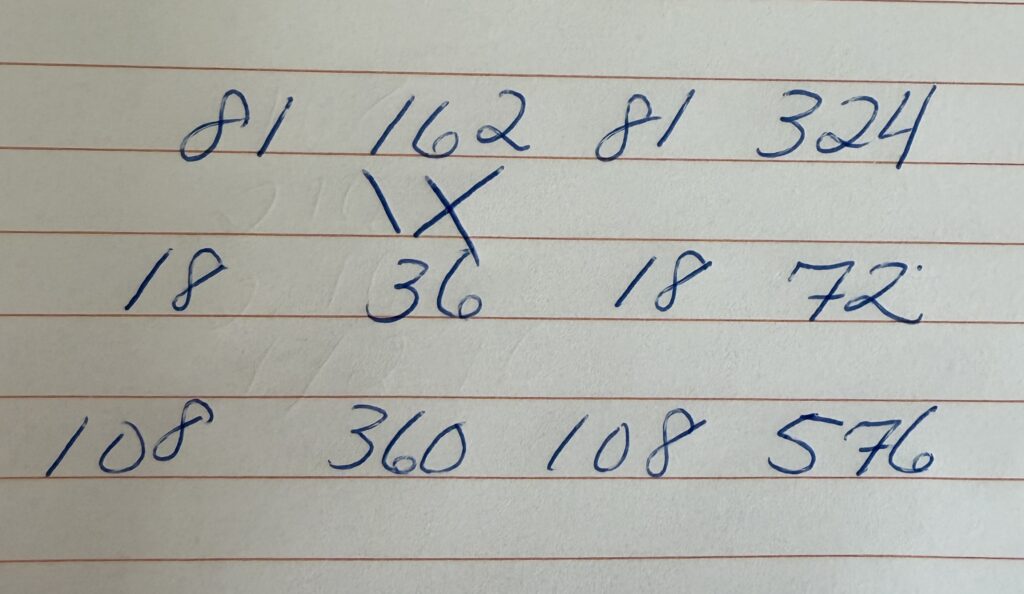 81 162 81 324
\X
18 36 18 72
108 360 108 576